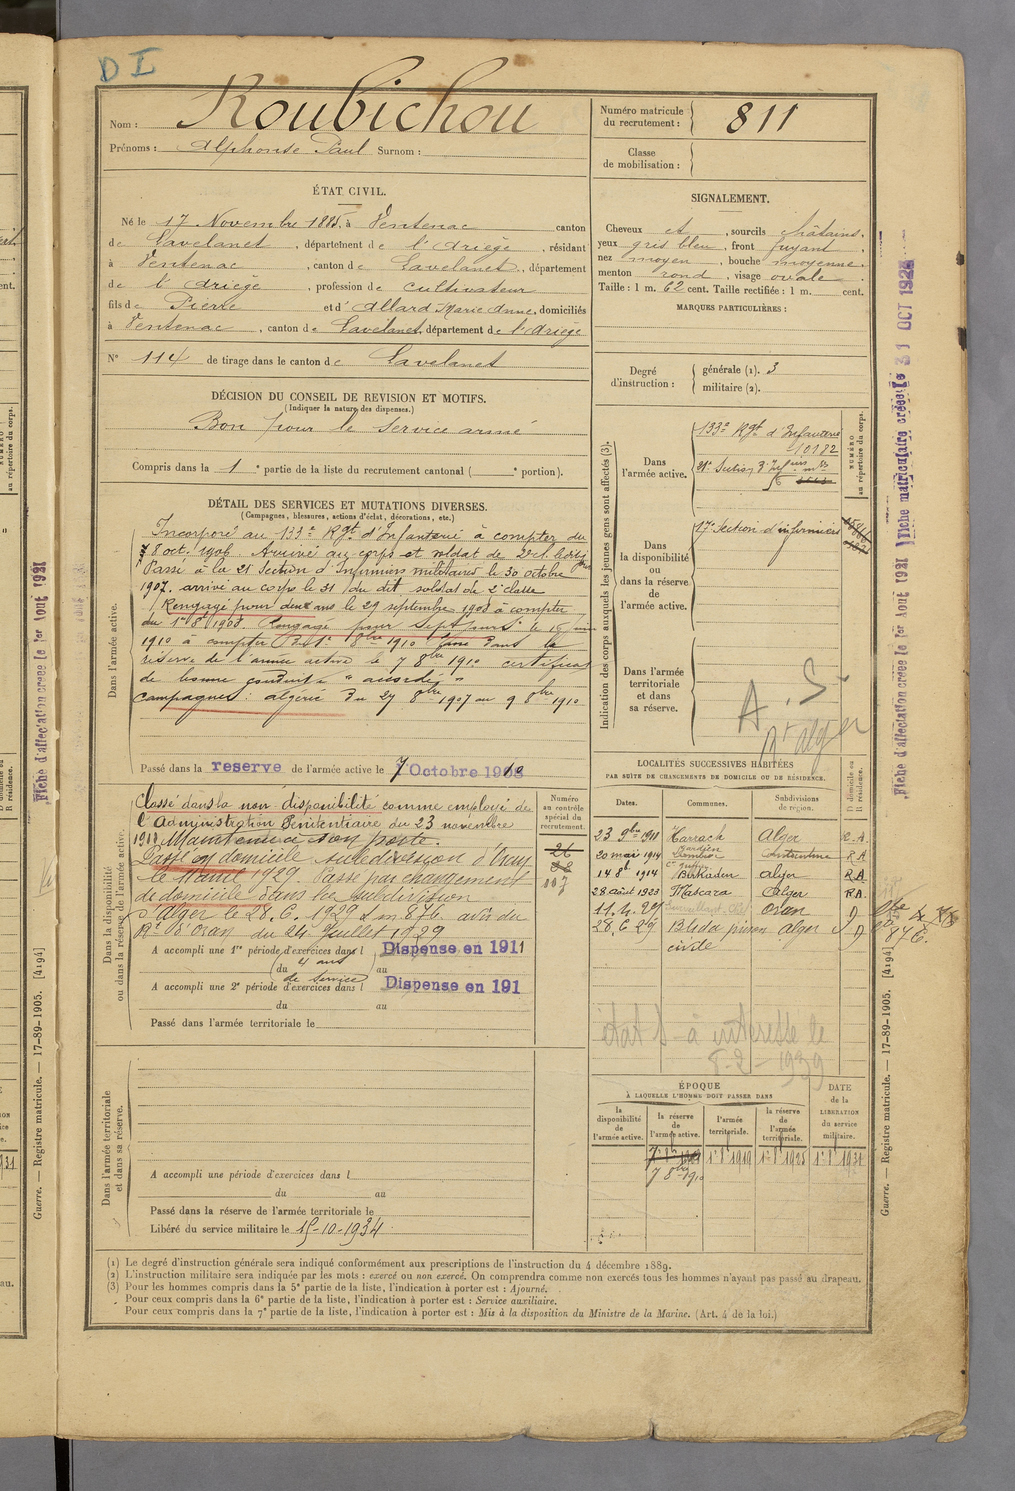 D I
Nom : Roubichou
Prénoms : Alphonse Paul Surnom :
Numéro matricule du recrutement : 811
Classe de mobilisation :
ÉTAT CIVIL.
Né le 17 Novembre 1885, à Ventenac canton
de Lavelanet, département de l'Ariège, résidant
à Ventenac, canton de Lavelanet, département
de l'Ariège, profession de cultivateur
fils de Pierre et d'Allard Marie Anne, domiciliés
à Ventenac, canton de Lavelanet, département de l'Ariège
N° 114 de tirage dans le canton de Lavelanet
SIGNALEMENT.
Cheveux et, sourcils châtains,
yeux gris bleu, front fuyant,
nez moyen, bouche moyenne,
menton rond, visage ovale
Taille : 1 m. 62 cent. Taille rectifiée : 1 m. cent.
MARQUES PARTICULIÈRES :
DÉCISION DU CONSEIL DE REVISION ET MOTIFS.
(Indiquer la nature des dispenses.)
Bon pour le service armé
Compris dans la 1e partie de la liste du recrutement cantonal ( e portion).
Degré d'instruction : générale (1). 3
militaire (2).
DÉTAIL DES SERVICES ET MUTATIONS DIVERSES.
(Campagnes, blessures, actions d'éclat, décorations, etc.)
Dans l'armée active.
Incorporé au 133e Rgt d'Infanterie à compter du
8 oct. 1906. Arrivé au corps et soldat de 2e cl. ledit jour
Passé à la 21 Section d'Infirmiers militaires le 30 octobre
1907. arrivé au corps le 31 du dit soldat de 2e classe
Rengagé pour deux ans le 29 septembre 1908 à compter
du 1er 8bre 1908. Rengagé pour sept jours le 15 juin
1910 à compter du 1er 8bre 1910 dans la
réserve de l'armée active le 7 8bre 1910 certificat
de bonne conduite "accordé"
Campagnes : algérie du 27 8bre 1907 au 9 8bre 1910
Passé dans la reserve de l'armée active le 7 Octobre 1910
Indication des corps auxquels les jeunes gens sont affectés (3).
NUMÉRO au répertoire du corps.
Dans l'armée active.
133e Rgt d'Infanterie
10182
21e Section d'Infiers mres
Dans la disponibilité ou dans la réserve de l'armée active.
17e Section d'infirmiers
Dans l'armée territoriale et dans sa réserve.
A. S.
Rt Alger
Dans la disponibilité ou dans la réserve de l'armée active.
Classé dans la non-disponibilité comme employé de
l'Administration Pénitentiaire du 23 novembre
1911 Maintenu à son poste.
Passé en domicile subdivision d'Oran
le 1929. Passé par changement
de domicile dans la subdivision
d'Alger le 28.6.1929 s/n 876 avis du
Rt d'Oran du 24 Juillet 1929
Numéro au contrôle spécial du recrutement.
A accompli une 1re période d'exercices dans l Dispense en 1911
4 ans
du au
de service
A accompli une 2e période d'exercices dans l Dispense en 191
du au
Passé dans l'armée territoriale le
LOCALITÉS SUCCESSIVES HABITÉES
PAR SUITE DE CHANGEMENTS DE DOMICILE OU DE RÉSIDENCE.
Dates. Communes. Subdivisions de région. D domicile ou R résidence.
23 9bre 1911 Harrach Alger R.A.
20 mars 1914 Gardien Constantine R A
14 8bre 1914 Birkadem Alger R A
28 août 1923 Mascara Alger R A.
11.4.29 Oran D
28.6.29 Blida prison civile Alger D
876.
état S à intéresse le
8-2-1939
Dans l'armée territoriale et dans sa réserve.
A accompli une période d'exercices dans l
du au
Passé dans la réserve de l'armée territoriale le
Libéré du service militaire le 15-10-1934
ÉPOQUE
À LAQUELLE L'HOMME DOIT PASSER DANS
la disponibilité de l'armée active. la réserve de l'armée active. l'armée territoriale. la réserve de l'armée territoriale. DATE de la LIBÉRATION du service militaire.
7 8bre 1910
(1) Le degré d'instruction générale sera indiqué conformément aux prescriptions de l'instruction du 4 décembre 1889.
(2) L'instruction militaire sera indiquée par les mots : exercé ou non exercé. On comprendra comme non exercés tous les hommes n'ayant pas passé au drapeau.
(3) Pour les hommes compris dans la 5e partie de la liste, l'indication à porter est : Ajourné.
Pour ceux compris dans la 6e partie de la liste, l'indication à porter est : Service auxiliaire.
Pour ceux compris dans la 7e partie de la liste, l'indication à porter est : Mis à la disposition du Ministre de la Marine. (Art. 4 de la loi.)
Fiche d'affectation créée le 1er Aout 1921
Fiche matriculaire créée le 31 OCT
Guerre. — Registre matricule. — 17-89-1905. [4194]
Fiche d'affectation créée le 1er Aout 1921
Guerre. — Registre matricule. — 17-89-1905. [4194]